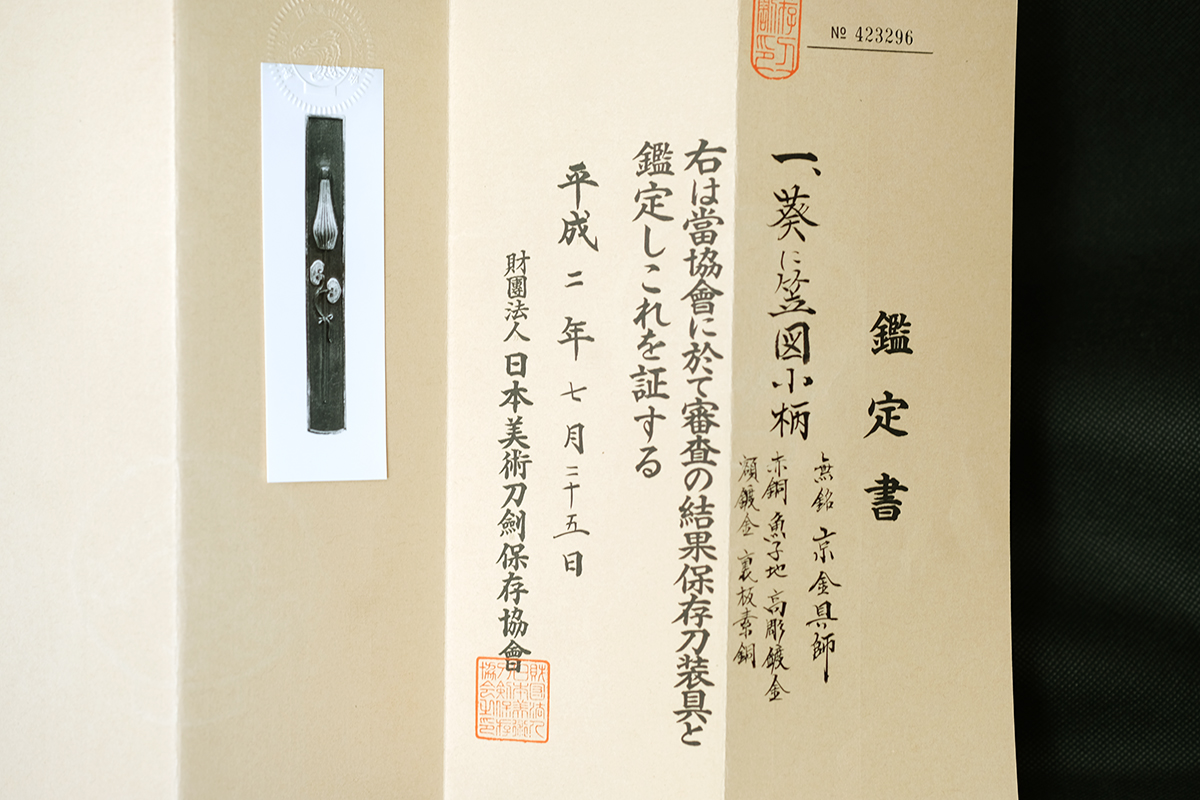 № 423296
鑑定書
一、葵に笠図小柄
無銘 京金具師
赤銅 魚子地 高彫 鍍金
額鍍金 裏板素銅
右は當協會に於て審査の結果保存刀装具と
鑑定しこれを証する
平成二年七月二十五日
財團法人 日本美術刀劍保存協會